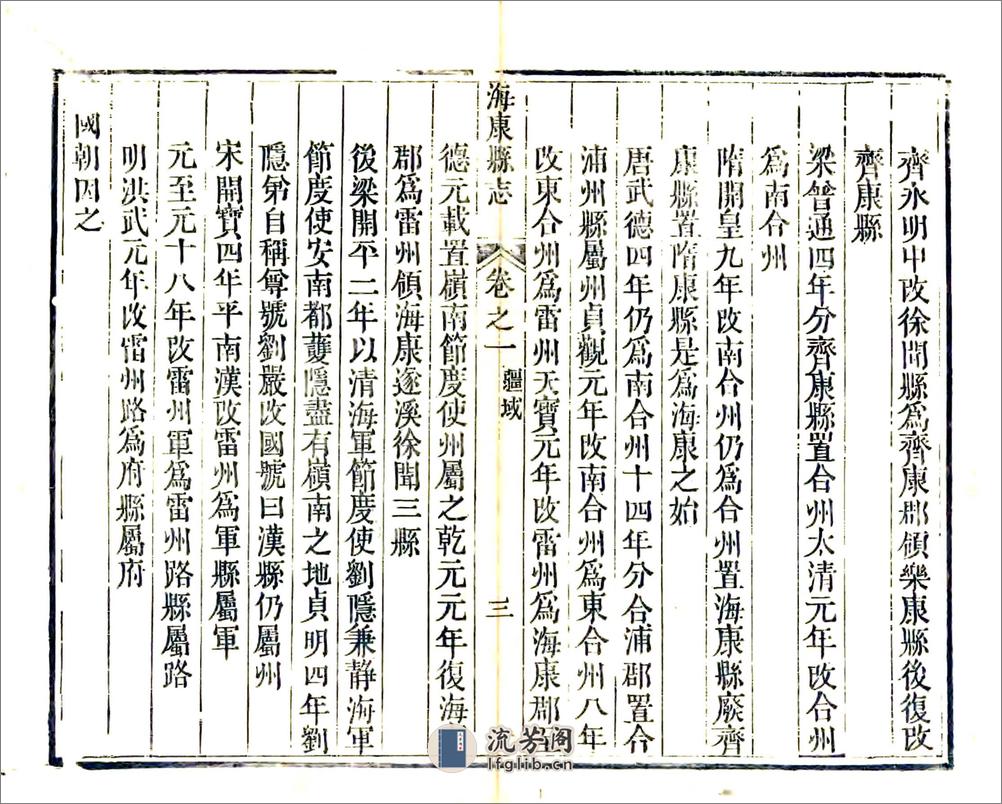 齊永明中改徐聞縣爲齊康郡領樂康縣後復改
齊康縣
梁普通四年分齊康縣置合州太清元年改合州
爲南合州
隋開皇九年改南合州仍爲合州置海康縣廢齊
康縣置隋康縣是爲海康之始
唐武德四年仍爲南合州十四年分合浦郡置合
浦州縣屬州貞觀元年改南合州爲東合州八年
改東合州爲雷州天寶元年改雷州爲海康郡
海康縣志 卷之一 疆域 三
德元載置嶺南節度使州屬之乾元元年復海
郡爲雷州領海康遂溪徐聞三縣
後梁開平二年以清海軍節度使劉隱兼静海軍
節度使安南都護隱盡有嶺南之地貞明四年劉
隱弟自稱尊號劉嚴改國號曰漢縣仍屬州
宋開寶四年平南漢改雷州爲軍縣屬軍
元至元十八年改雷州軍爲雷州路縣屬路
明洪武元年改雷州路爲府縣屬府
國朝因之
流芳阁
lfglib.cn